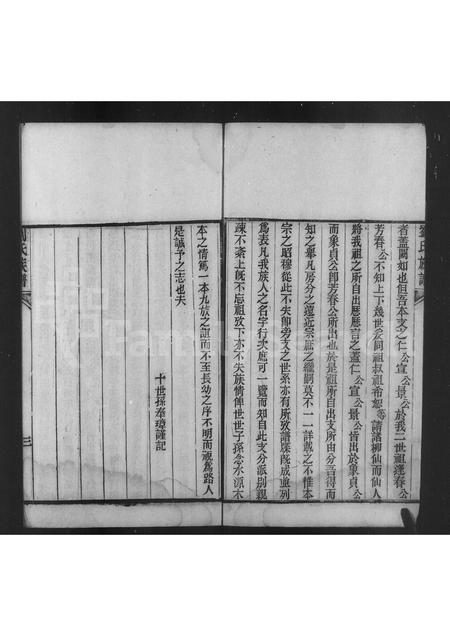 者蓋闕如也但吾本支之仁公宣公景公於我二世祖逢春公
芳春公不知上下幾世於同祖叔祖希恕等請諸柳仙而仙人
將我祖之所自出歷歷言之蓋仁公宣公景公皆出於東貞公
而東貞公卽芳春公所出也於是祖所自出支所由分語得而
知之畢凡房分之遠近宗庶之繼嗣莫不一一詳載之不惟本
宗之昭穆從此不失卽旁支之世系亦有所攷譜牒旣成並列
爲表凡我族人之名字行次庶可一覽而知自此支分派別親
疎不紊上旣不忘祖攷下亦不失族情俾世世子孫念水源木
本之情篤一本九族之誼而不至長幼之序不明而視爲路人
是誠予之志也夫
十世孫奉璋謹記
氏族譜
三